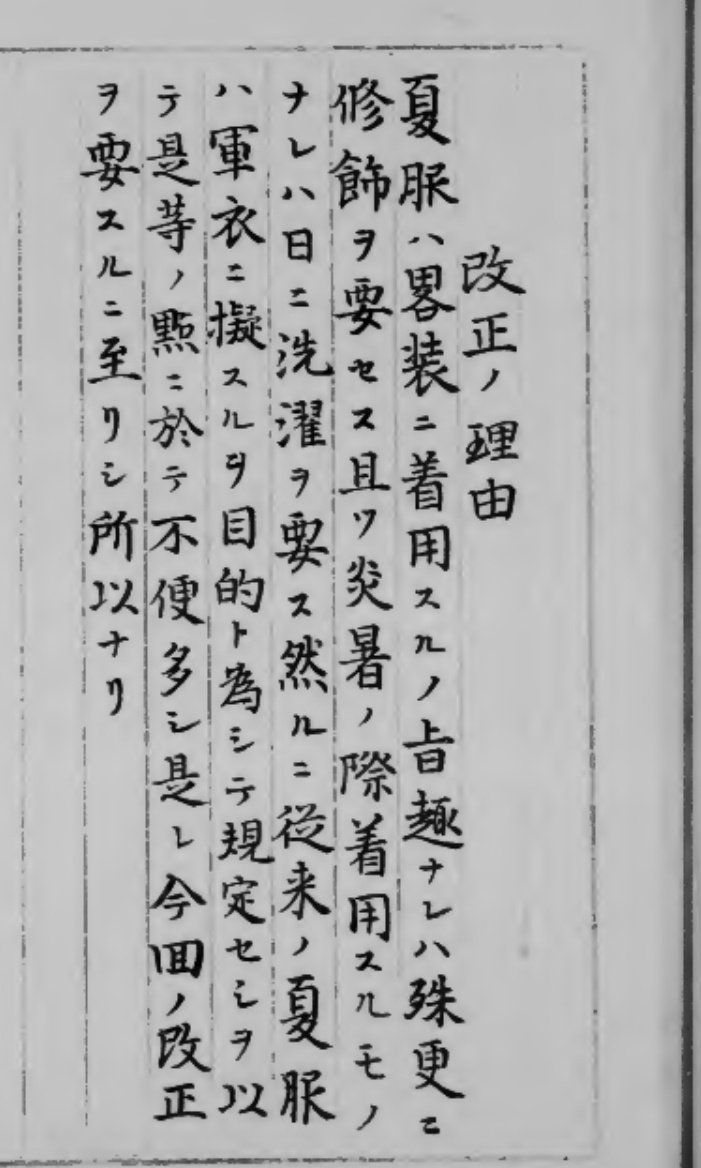 改正ノ理由
夏服ハ畧装ニ着用スルノ旨趣ナレハ殊更ニ
修飾ヲ要セス且ツ炎暑ノ際着用スルモノ
ナレハ日ニ洗濯ヲ要ス然ルニ従来ノ夏服
ハ軍衣ニ擬スルヲ目的ト為シテ規定セシヲ以
テ是等ノ點ニ於テ不便多シ是レ今回ノ改正
ヲ要スルニ至リシ所以ナリ